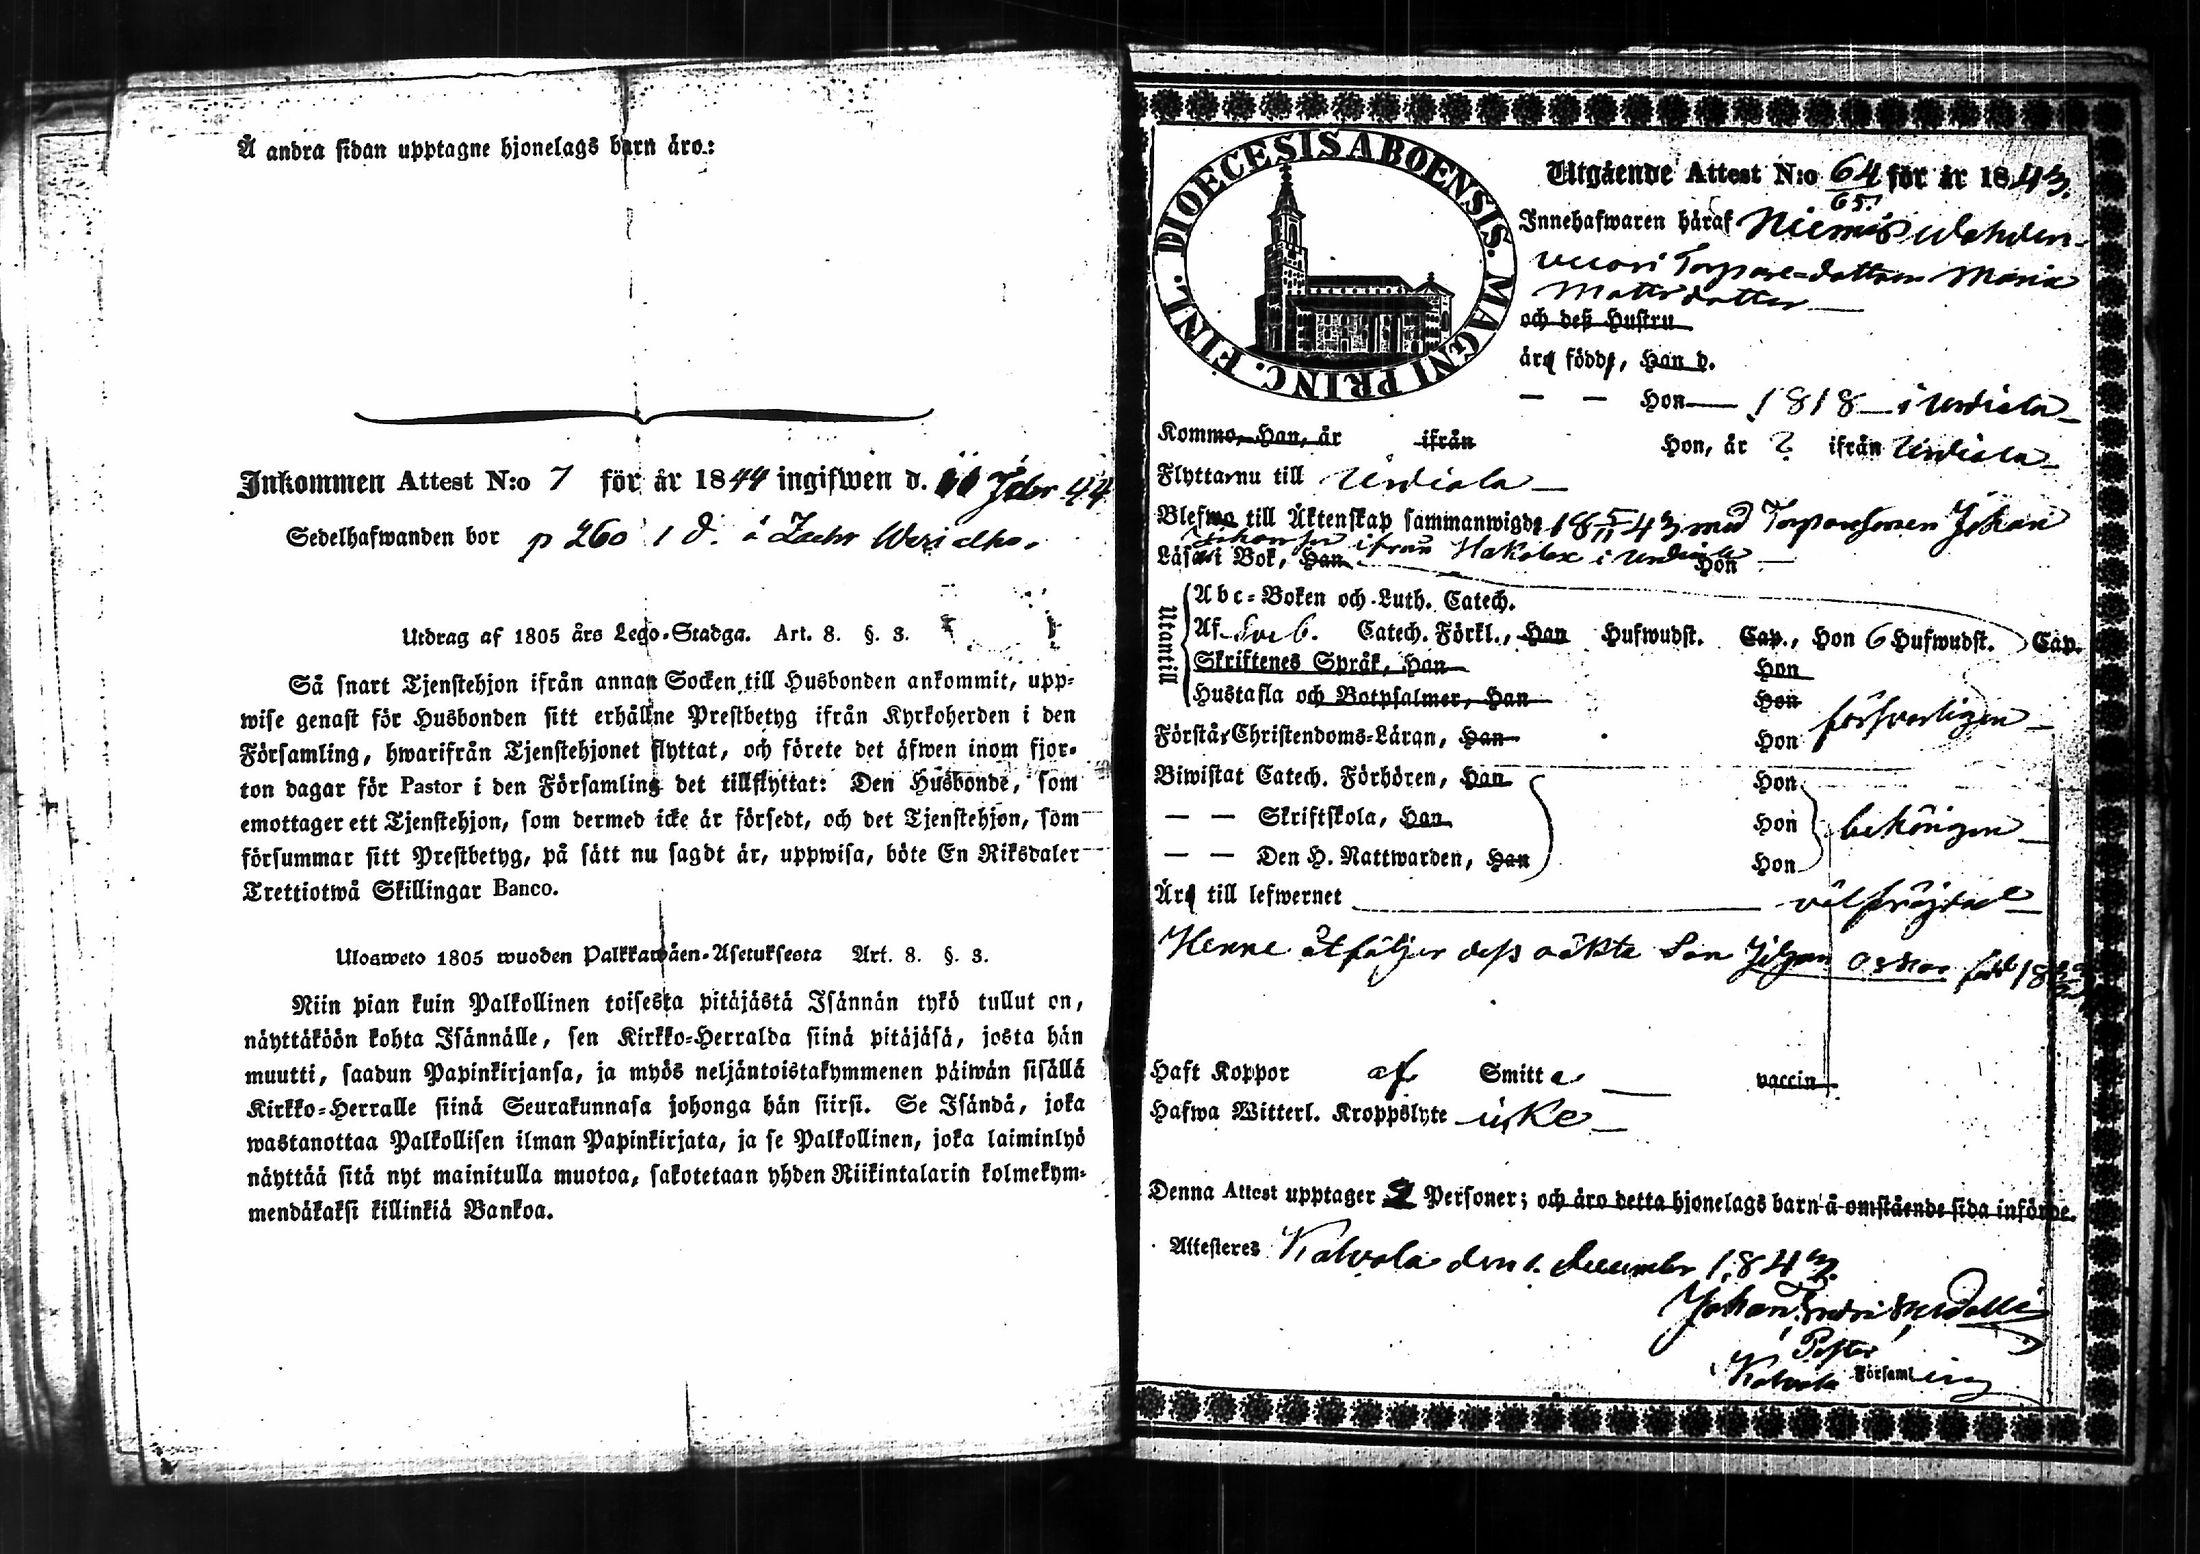 Å andra sidan upptagne hjonelags barn äro.:
Inkommen Attest N:o 7 för år 1844 ingifwen d. 11 Febr 44
Sedelhafwanden bor p 260 1 d. å Zachr
Utdrag af 1805 års Lego-Stadga. Art. 8. §. 3.
Så snart Tjenstehjon ifrån annan Socken till Husbonden ankommit, upp-
wise genast för Husbonden sitt erhållne Prestbetyg ifrån Kyrkoherden i den
Församling, hwarifrån Tjenstehjonet flyttat, och förete det äfwen inom fjor-
ton dagar för Pastor i den Församling det tillflyttat: Den Husbonde, som
emottager ett Tjenstehjon, som dermed icke är försedt, och det Tjenstehjon, som
försummar sitt Prestbetyg, på sätt nu sagdt är, uppwisa, böte En Riksdaler
Trettiotwå Skillingar Banco.
Ulosweto 1805 wuoden Palkkawäen-Asetuksesta Art. 8. §. 3.
Niin pian kuin Palkollinen toisesta pitäjästä Isännän tykö tullut on,
näyttäköön kohta Isännälle, sen Kirkko-Herralda siinä pitäjäsä, josta hän
muutti, saadun Papinkirjansa, ja myös neljäntoistakymmenen päiwän sisällä
Kirkko-Herralle siinä Seurakunnasa johonga hän siirsi. Se Isändä, joka
wastanottaa Palkollisen ilman Papinkirjata, ja se Palkollinen, joka laiminlyö
näyttää sitä nyt mainitulla muotoa, sakotetaan yhden Riikintalarin kolmekym-
mendäkaksi killinkiä Bankoa.
DIOECESIS ABOENSIS. MAGNI PRINC. FINL.
Utgående Attest N:o 64 för år 1843.
65.
Innehafwaren häraf Niemis
vuori Torpare-dottren Maria
Mattsdotter
och deß Hustru
äro födde, Han d.
— — Hon 1818 i Urdiala
Komme, Han, år ifrån Hon, år ? ifrån Urdiala
Flyttar nu till Urdiala
Blefwo till Äktenskap sammanwigde 18 5/11 43 med Torparesonen Johan
Johansson ifrån Hakolax i Urdiala
Läsa i Bok, Han Hon
Utantill
Abc-Boken och Luth. Catech.
Af Sveb. Catech. Förkl., Han Hufwudst. Cap., Hon 6 Hufwudst. Cap.
Skriftenes Språk, Han Hon
Hustafla och Botpsalmer, Han Hon
Förstår Christendoms-Läran, Han Hon försvarligen
Biwistat Catech. Förhören, Han Hon
— — Skriftskola, Han Hon behörigen
— — Den H. Nattwarden, Han Hon
Äro till lefwernet välfrejdad
Henne åtföljer dess oäkta Son Johan Oskar född 18
Haft Koppor af Smitta vaccin
Hafwa Witterl. Kroppslyte icke
Denna Attest upptager 2 Personer; och äro detta hjonelags barn å omstående sida införde.
Attesteres Kalvola den 1. December 1843.
Johan
Pastor
i Kalvola Församling